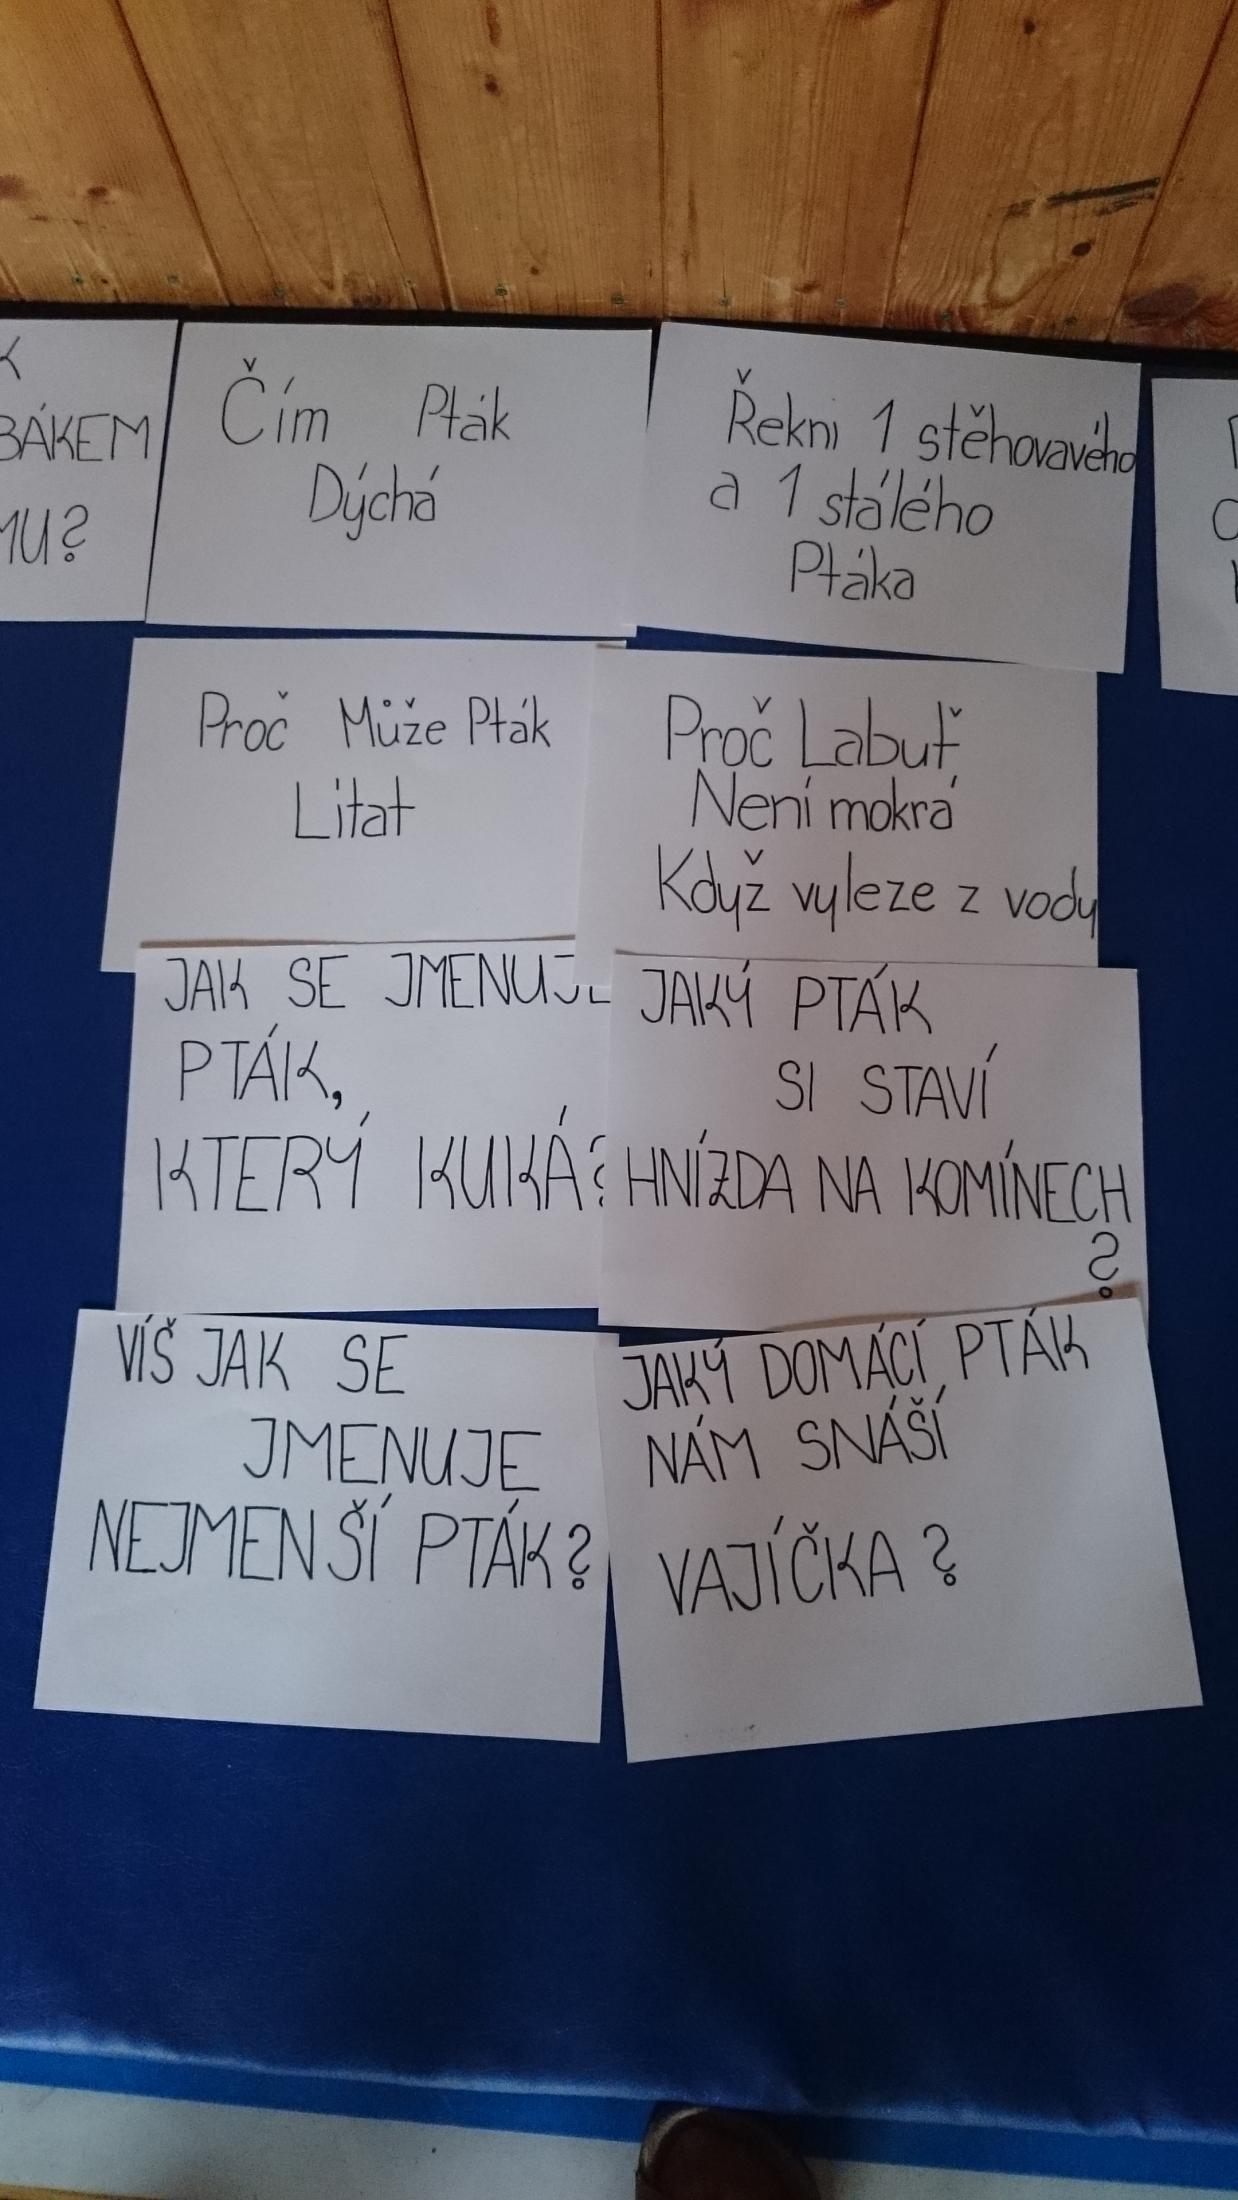 BÁKEM
MU?
Čím Pták
Dýchá
Řekni 1 stěhovavého
a 1 stálého
Ptáka
Proč Může Pták
Litat
Proč Labuť
Není mokrá
Když vyleze z vody
JAK SE JMENUJE
PTÁK,
KTERÝ KUKÁ?
JAKÝ PTÁK
SI STAVÍ
HNÍZDA NA KOMÍNECH
?
VÍŠ JAK SE
JMENUJE
NEJMENŠÍ PTÁK?
JAKÝ DOMÁCÍ PTÁK
NÁM SNÁŠÍ
VAJÍČKA?